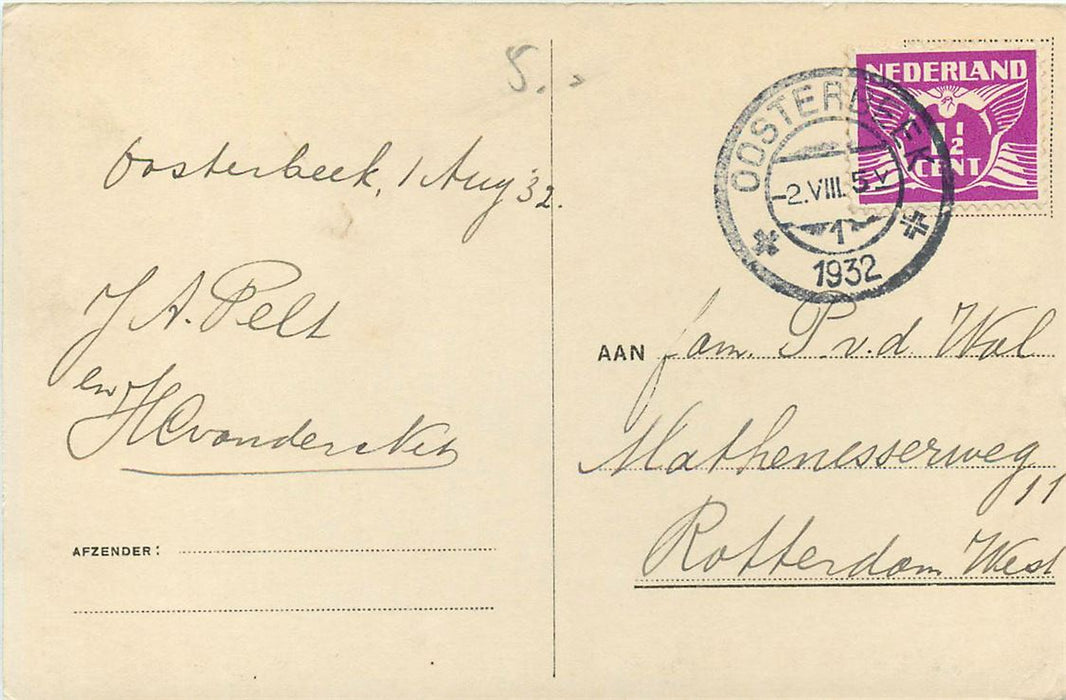 5.
Oosterbeek, 1 Aug '32.
J A. Pelt
en
HCvanderNet
AFZENDER:
NEDERLAND
1 1/2
CENT
OOSTERBEEK
-2.VIII. 5V
1
1932
AAN fam. P. v.d Wal
Mathenesserweg 11
Rotterdam West